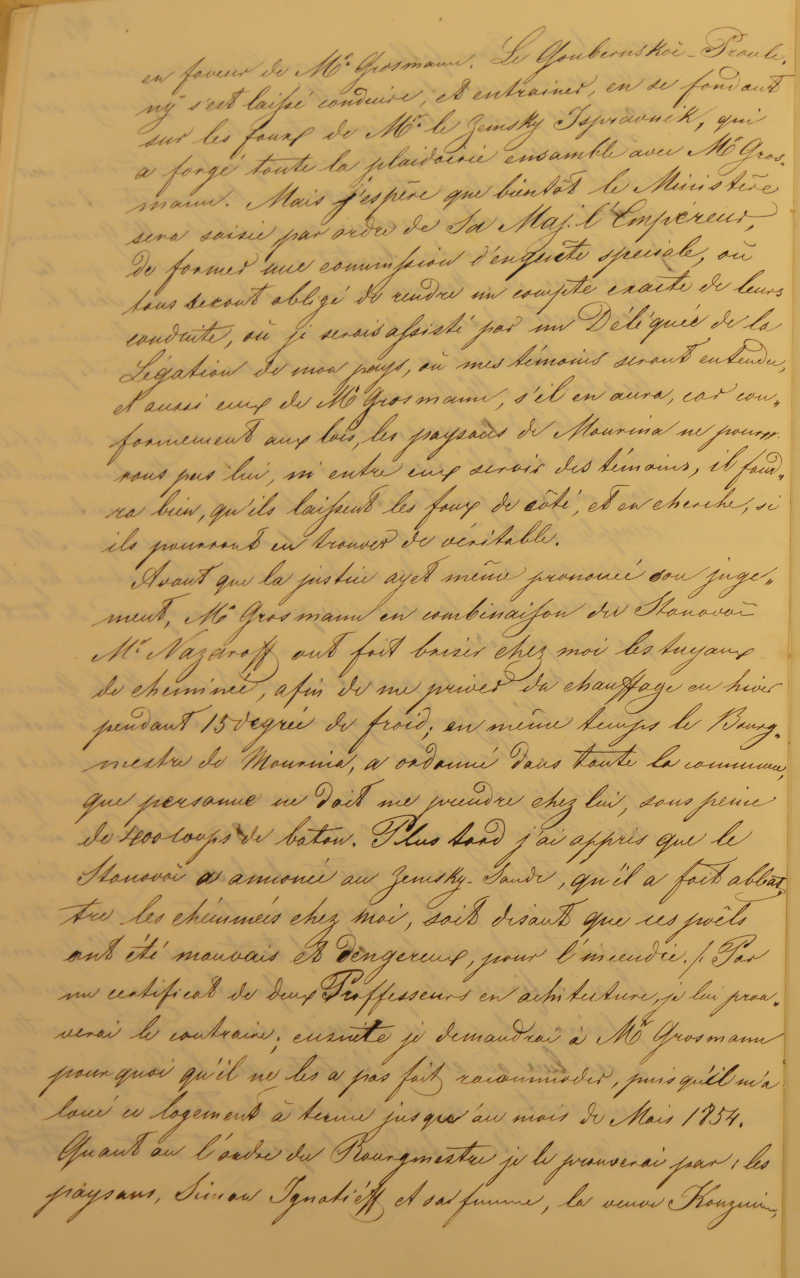 en faveur de Mr Grosmann. Le Goubernskoë-Pravle,
ny s'est laissé conduire, et entrainer, en se fondant
sur les faux de Mr. le Zemsky Ispravnik, qui
a forgé toute la plaidoirie ensamble avec Mr Gros-
mann. Mais j'espère que bientôt le Ministère
sera saisie par ordre de Sa Maj. l'Empéreur,
de former une commission d'enquête speciale, où
tous seront obligé de rendre un compte exacte de leurs
conduite, où je serois assisté par un Délèquée de la
Légation de mon pays, où mes témoins seront entendu,
et aussi ceux de Mr Grosmann, s'il en aura, car con„
formement aux lois, les paysans de Mourina ne pour
rons pas lui, ni entre eux servir des témoins, il faud„
ra bien, qu'ils laissent les faux de côté, et en cherche, si
ils pourront en trouver de véritable.
Avant que la justice ayet même prononcé son juge„
ment, Mr Grosmann en combinaison du Stanovoë
Mr. Nazaroff ont fait briser chez moi les tuyaux
de cheminée, afin de me priver du chauffage en hiver
pendant 15 degrée de froid; en même temps le Bourg„
mestre de Mourina, a ordonné dans toute la commune,
que personne ne doit me prendre chez lui, sous peine
de 400 coups de baton. Plus tard j'ai appris que le
Stanovoë a annoncée au Zemsky-Soude, qu'il a fait abbat„
tre les chéminnés chez moi, soit disant que ces poêls
ont été mauvais et dengereux, pour l'incendie. /. Par
un certificat de deux Proffesseurs en achitecture, je lui prou„
verai le contraire; ensuite je demandrai à Mr Grosmann
pourquoi qu'il ne les a pas fait racommoder, puisqu'il m'a
loué ce logement à terme jusqu'au mois de Mais 1854.
Quant au l'ordre du Bourgmestre je le prouverai par: les
paysans, Simon Ignatiéff et sa femme, la veuve